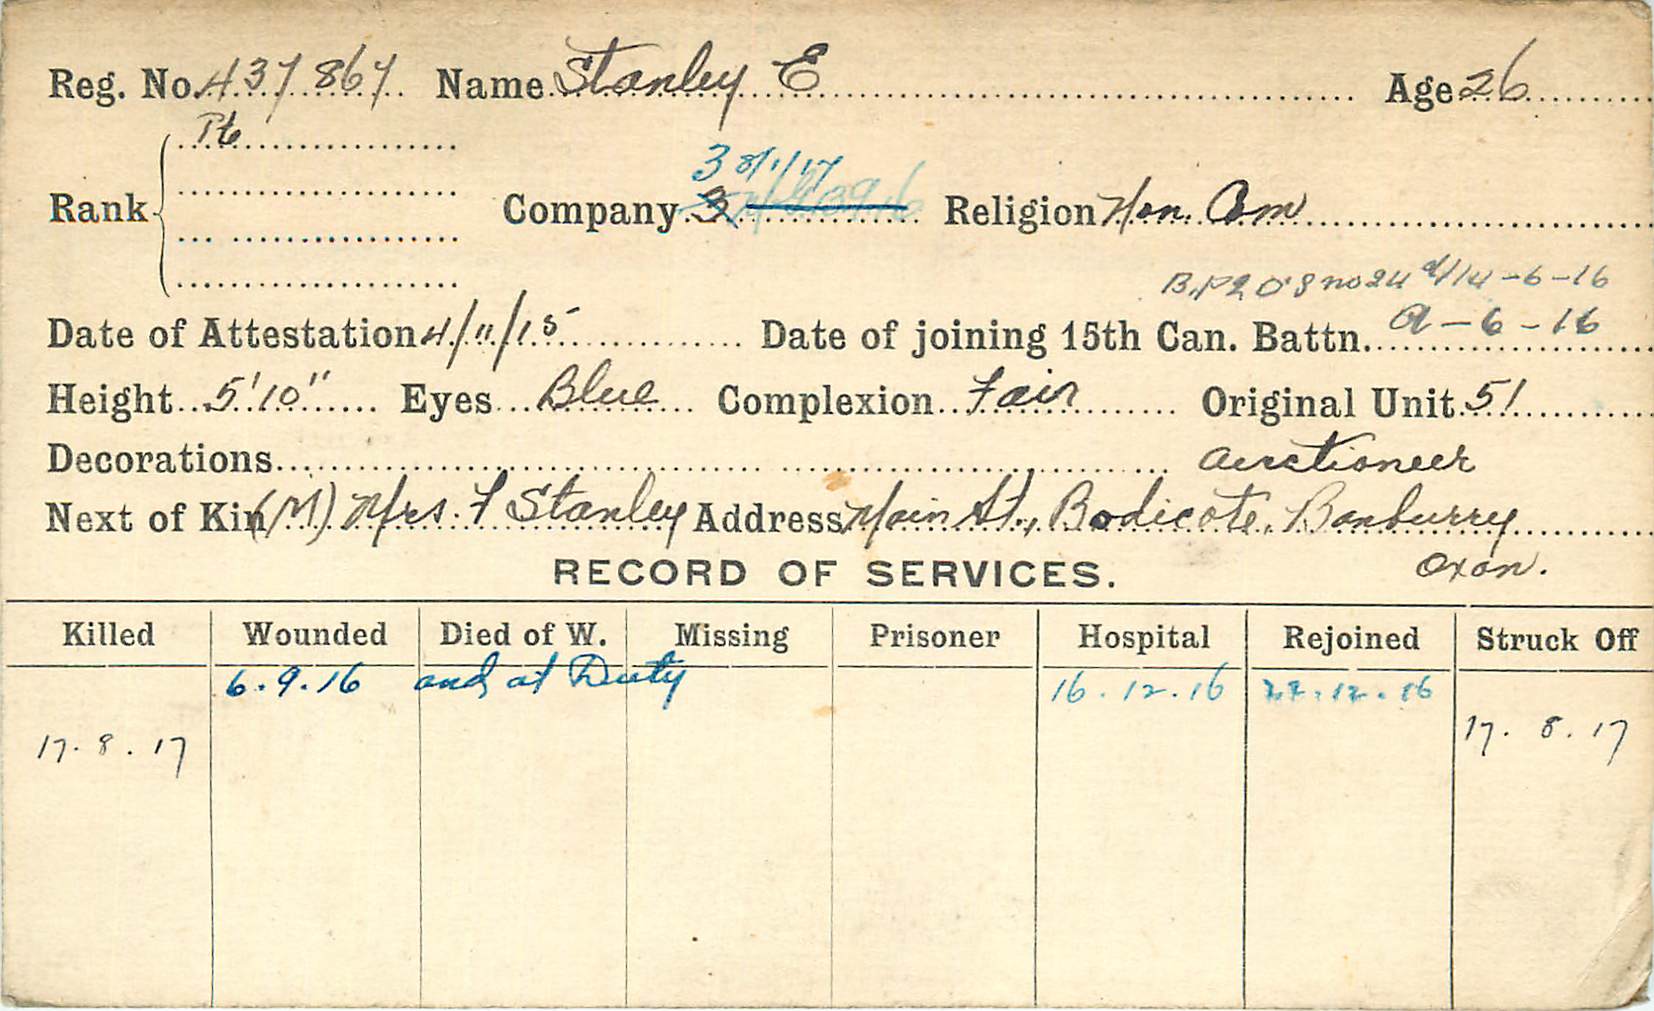 Reg. No. 437867 Name Stanley E Age 26
Pte
3 8/1/17
Rank Company 3 Religion Non. Com
B.P2 O 8 no 24 d/14-6-16
Date of Attestation 4/11/15 Date of joining 15th Can. Battn. 9-6-16
Height 5'10" Eyes Blue Complexion Fair Original Unit 51
Decorations auctioneer
Next of Kin (M) Mrs. F Stanley Address Main St., Bodicote, Banburry
Oxon.
RECORD OF SERVICES.
Killed Wounded Died of W. Missing Prisoner Hospital Rejoined Struck Off
6.9.16 and at Duty 16.12.16 .12.16
17.8.17 17.8.17